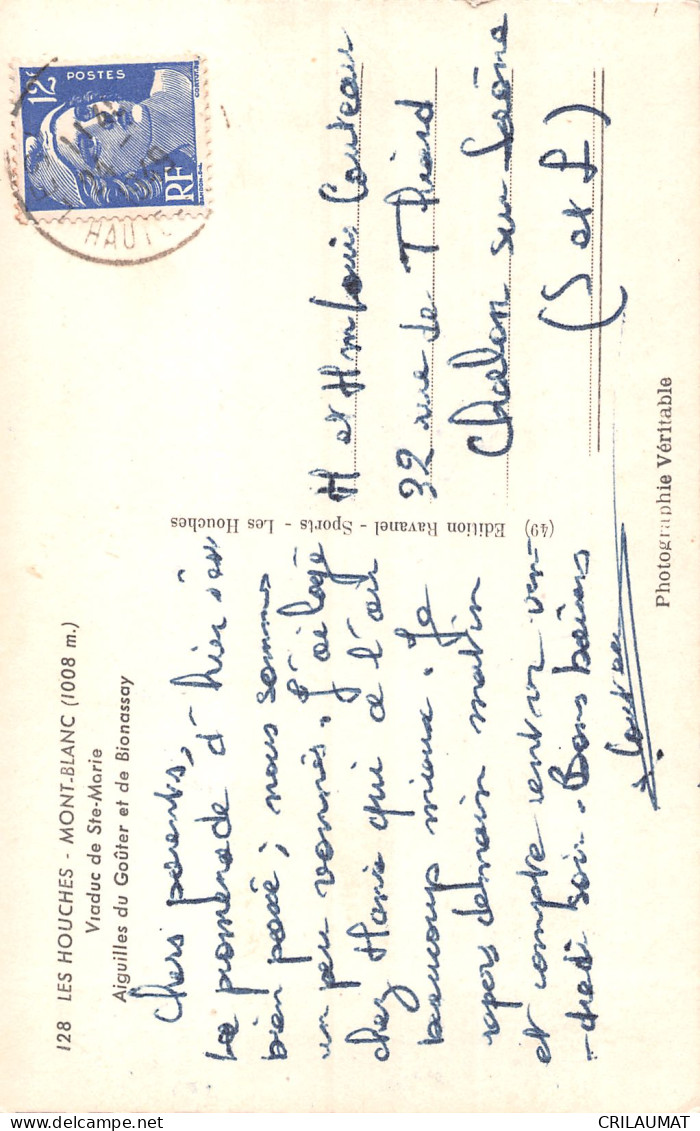 128 LES HOUCHES - MONT-BLANC (1008 m.)
Viaduc de Ste-Marie
Aiguilles du Goûter et de Bionassay
Chers parents,
La promenade d'hier s'est
bien passé; nous sommes
un peu vannés. J'ai logé
chez Marie qui a l'air
beaucoup mieux. Je
repars demain matin
et compte rentrer ven-
-dredi soir. Bons baisers
(49) Edition Ravanel - Sports - Les Houches
12F
POSTES
RF
HAUTE
M et Mme Louis Couteau
32 rue de Thiard
Chalon sur Saône
(S et L)
Photographie Véritable
CRILAUMAT